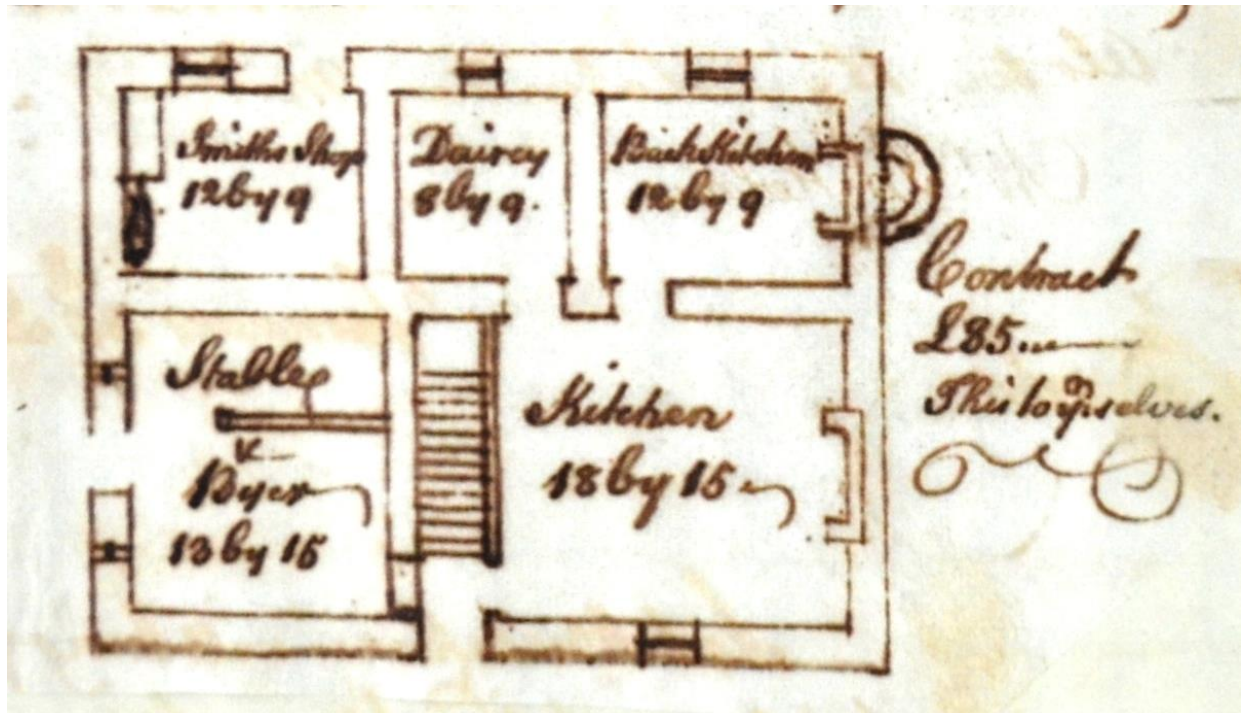 Smiths Shop
12 by 9
Dairey
8 by 9.
Back Kitchen
12 by 9
Stable
&
Byer
13 by 15
Kitchen
18 by 15
Contract
£85
This to